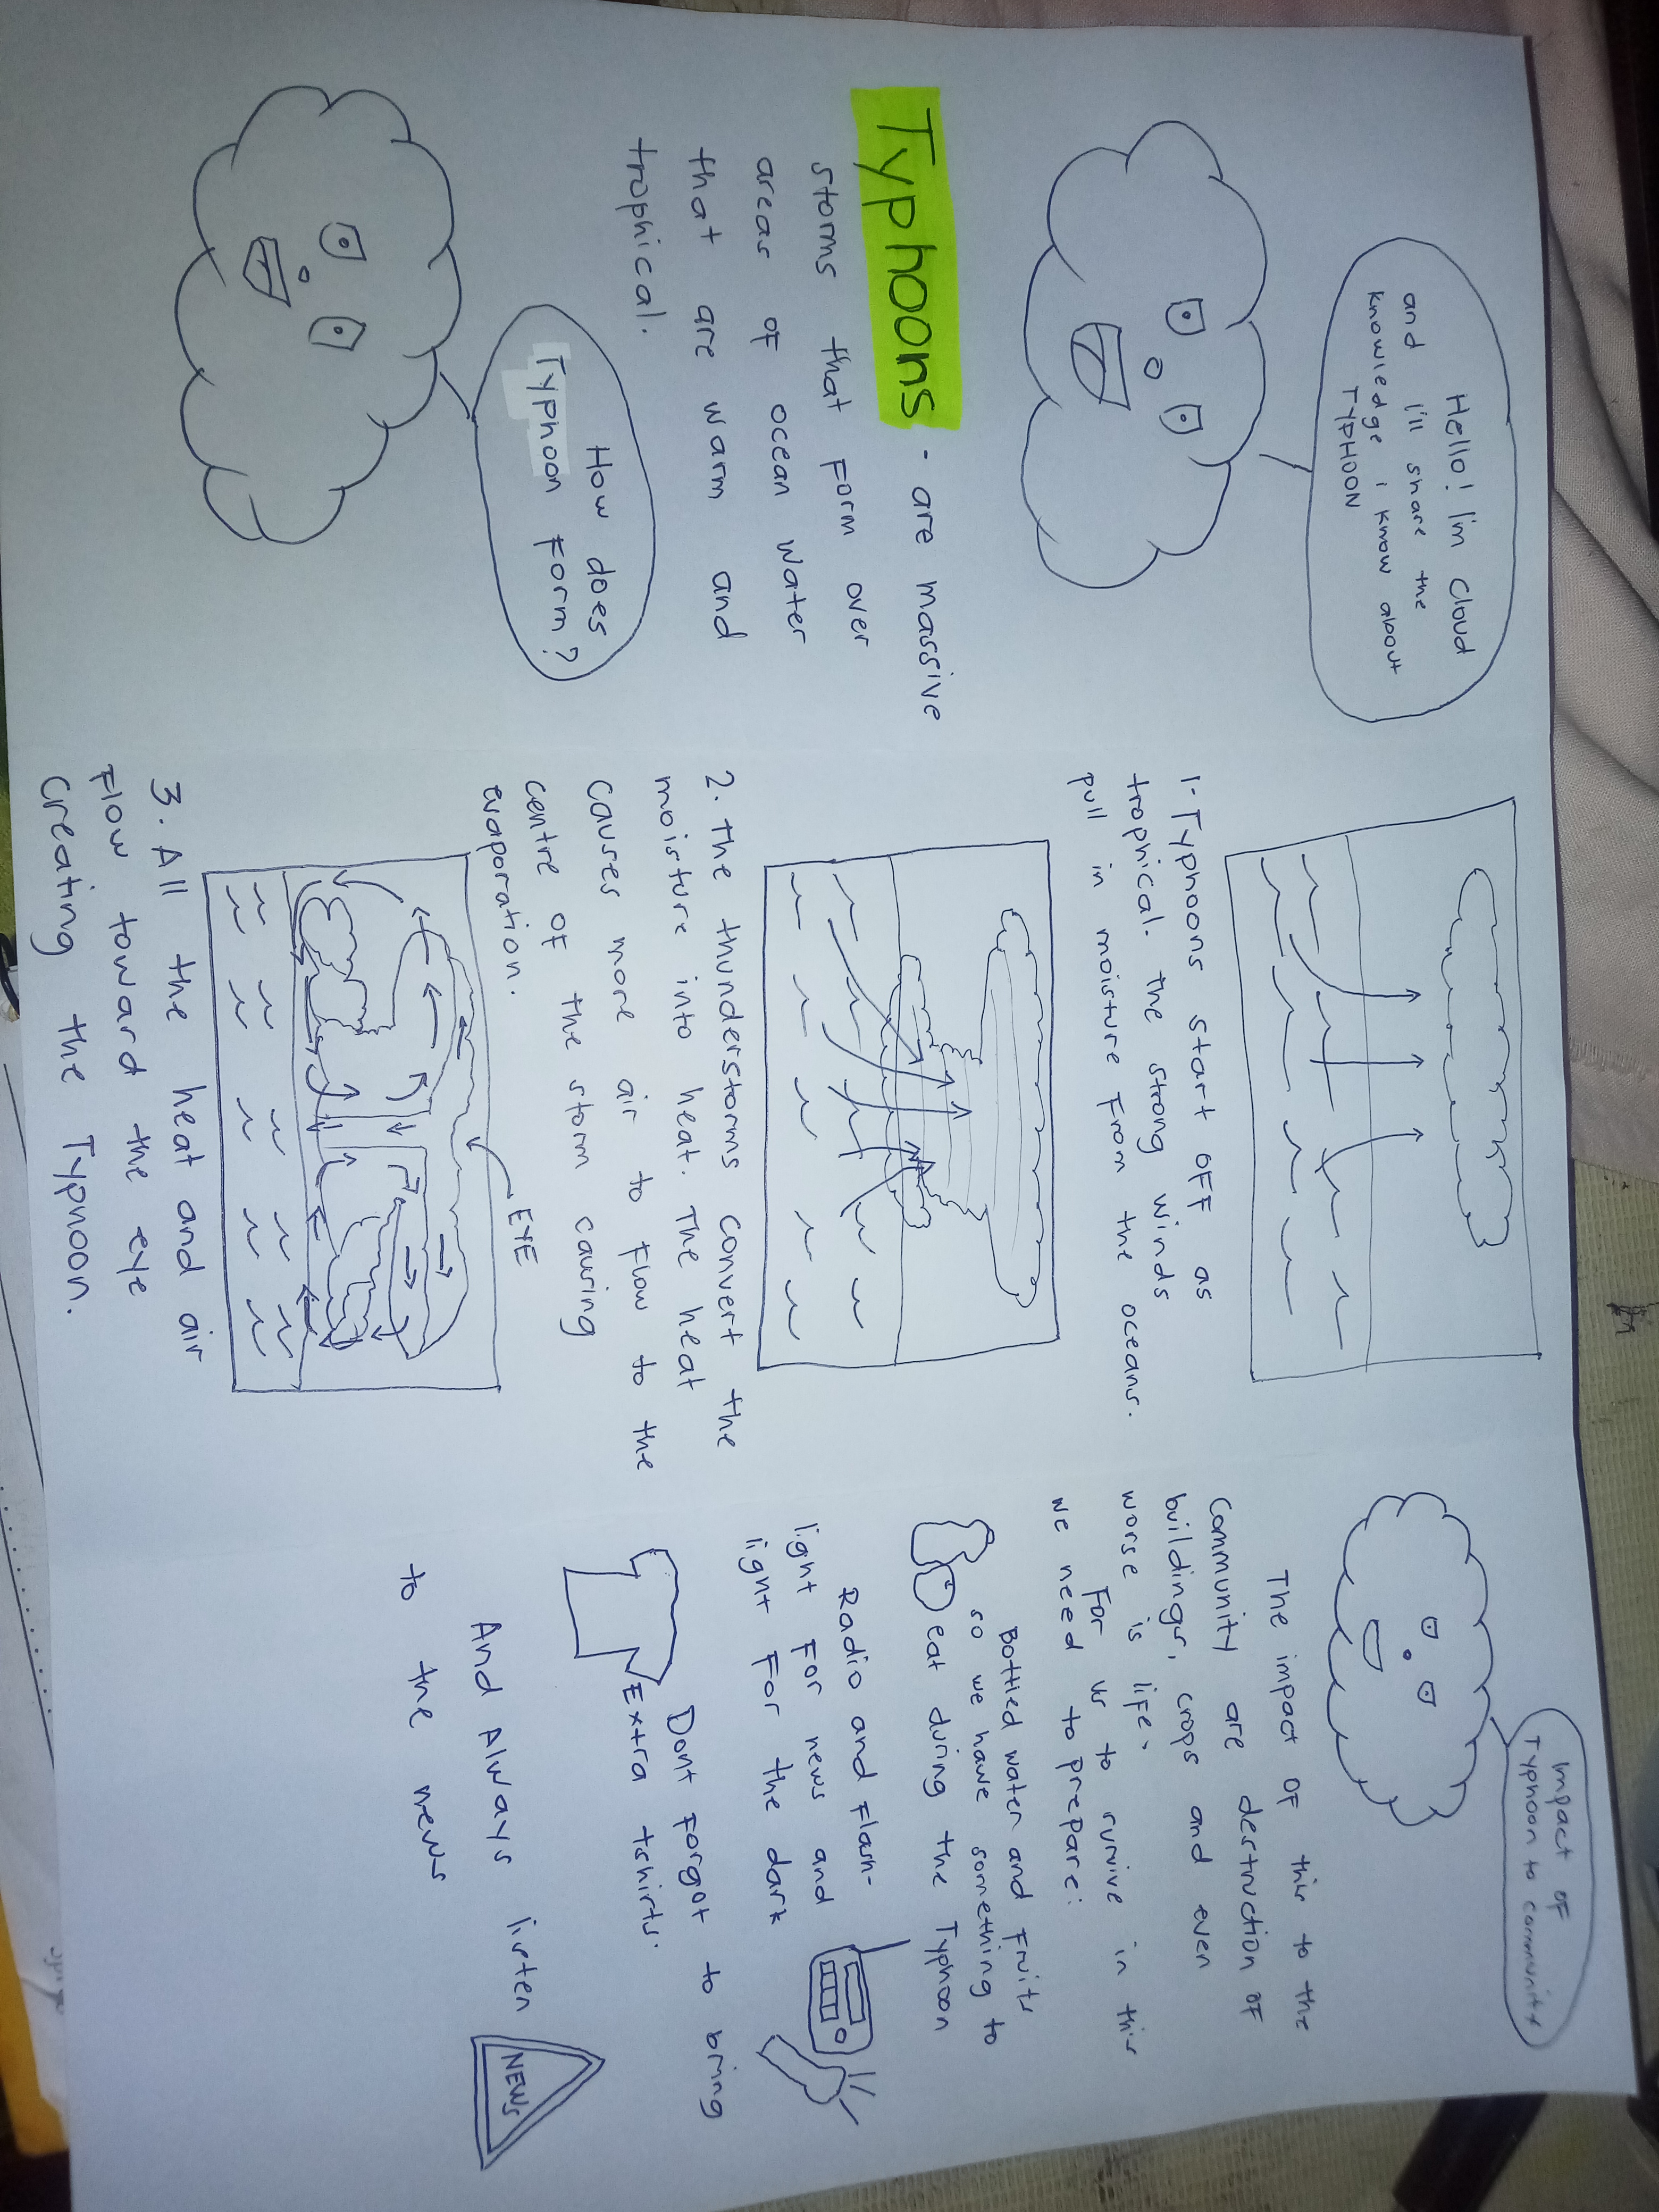 Hello! I'm Cloud
and I'll share the
knowledge i know about
TYPHOON
Typhoons - are massive
storms that form over
areas of ocean water
that are warm and
trophical.
How does
Typhoon form?
1. Typhoons start off as
trophical. the strong winds
pull in moisture from the oceans.
2. the thunderstorms convert the
moisture into heat. The heat
causes more air to flow to the
centre of the storm causing
evaporation.
EYE
3. All the heat and air
flow toward the eye
creating the Typhoon.
Impact of
Typhoon to community
The impact of this to the
community are destruction of
buildings, crops and even
worse is life.
For us to survive in this
we need to prepare:
Bottled water and fruits
so we have something to
eat during the Typhoon
Radio and Flash-
light for news and
light for the dark
Dont forgot to bring
Extra tshirts.
And Always listen
to the news
NEWS